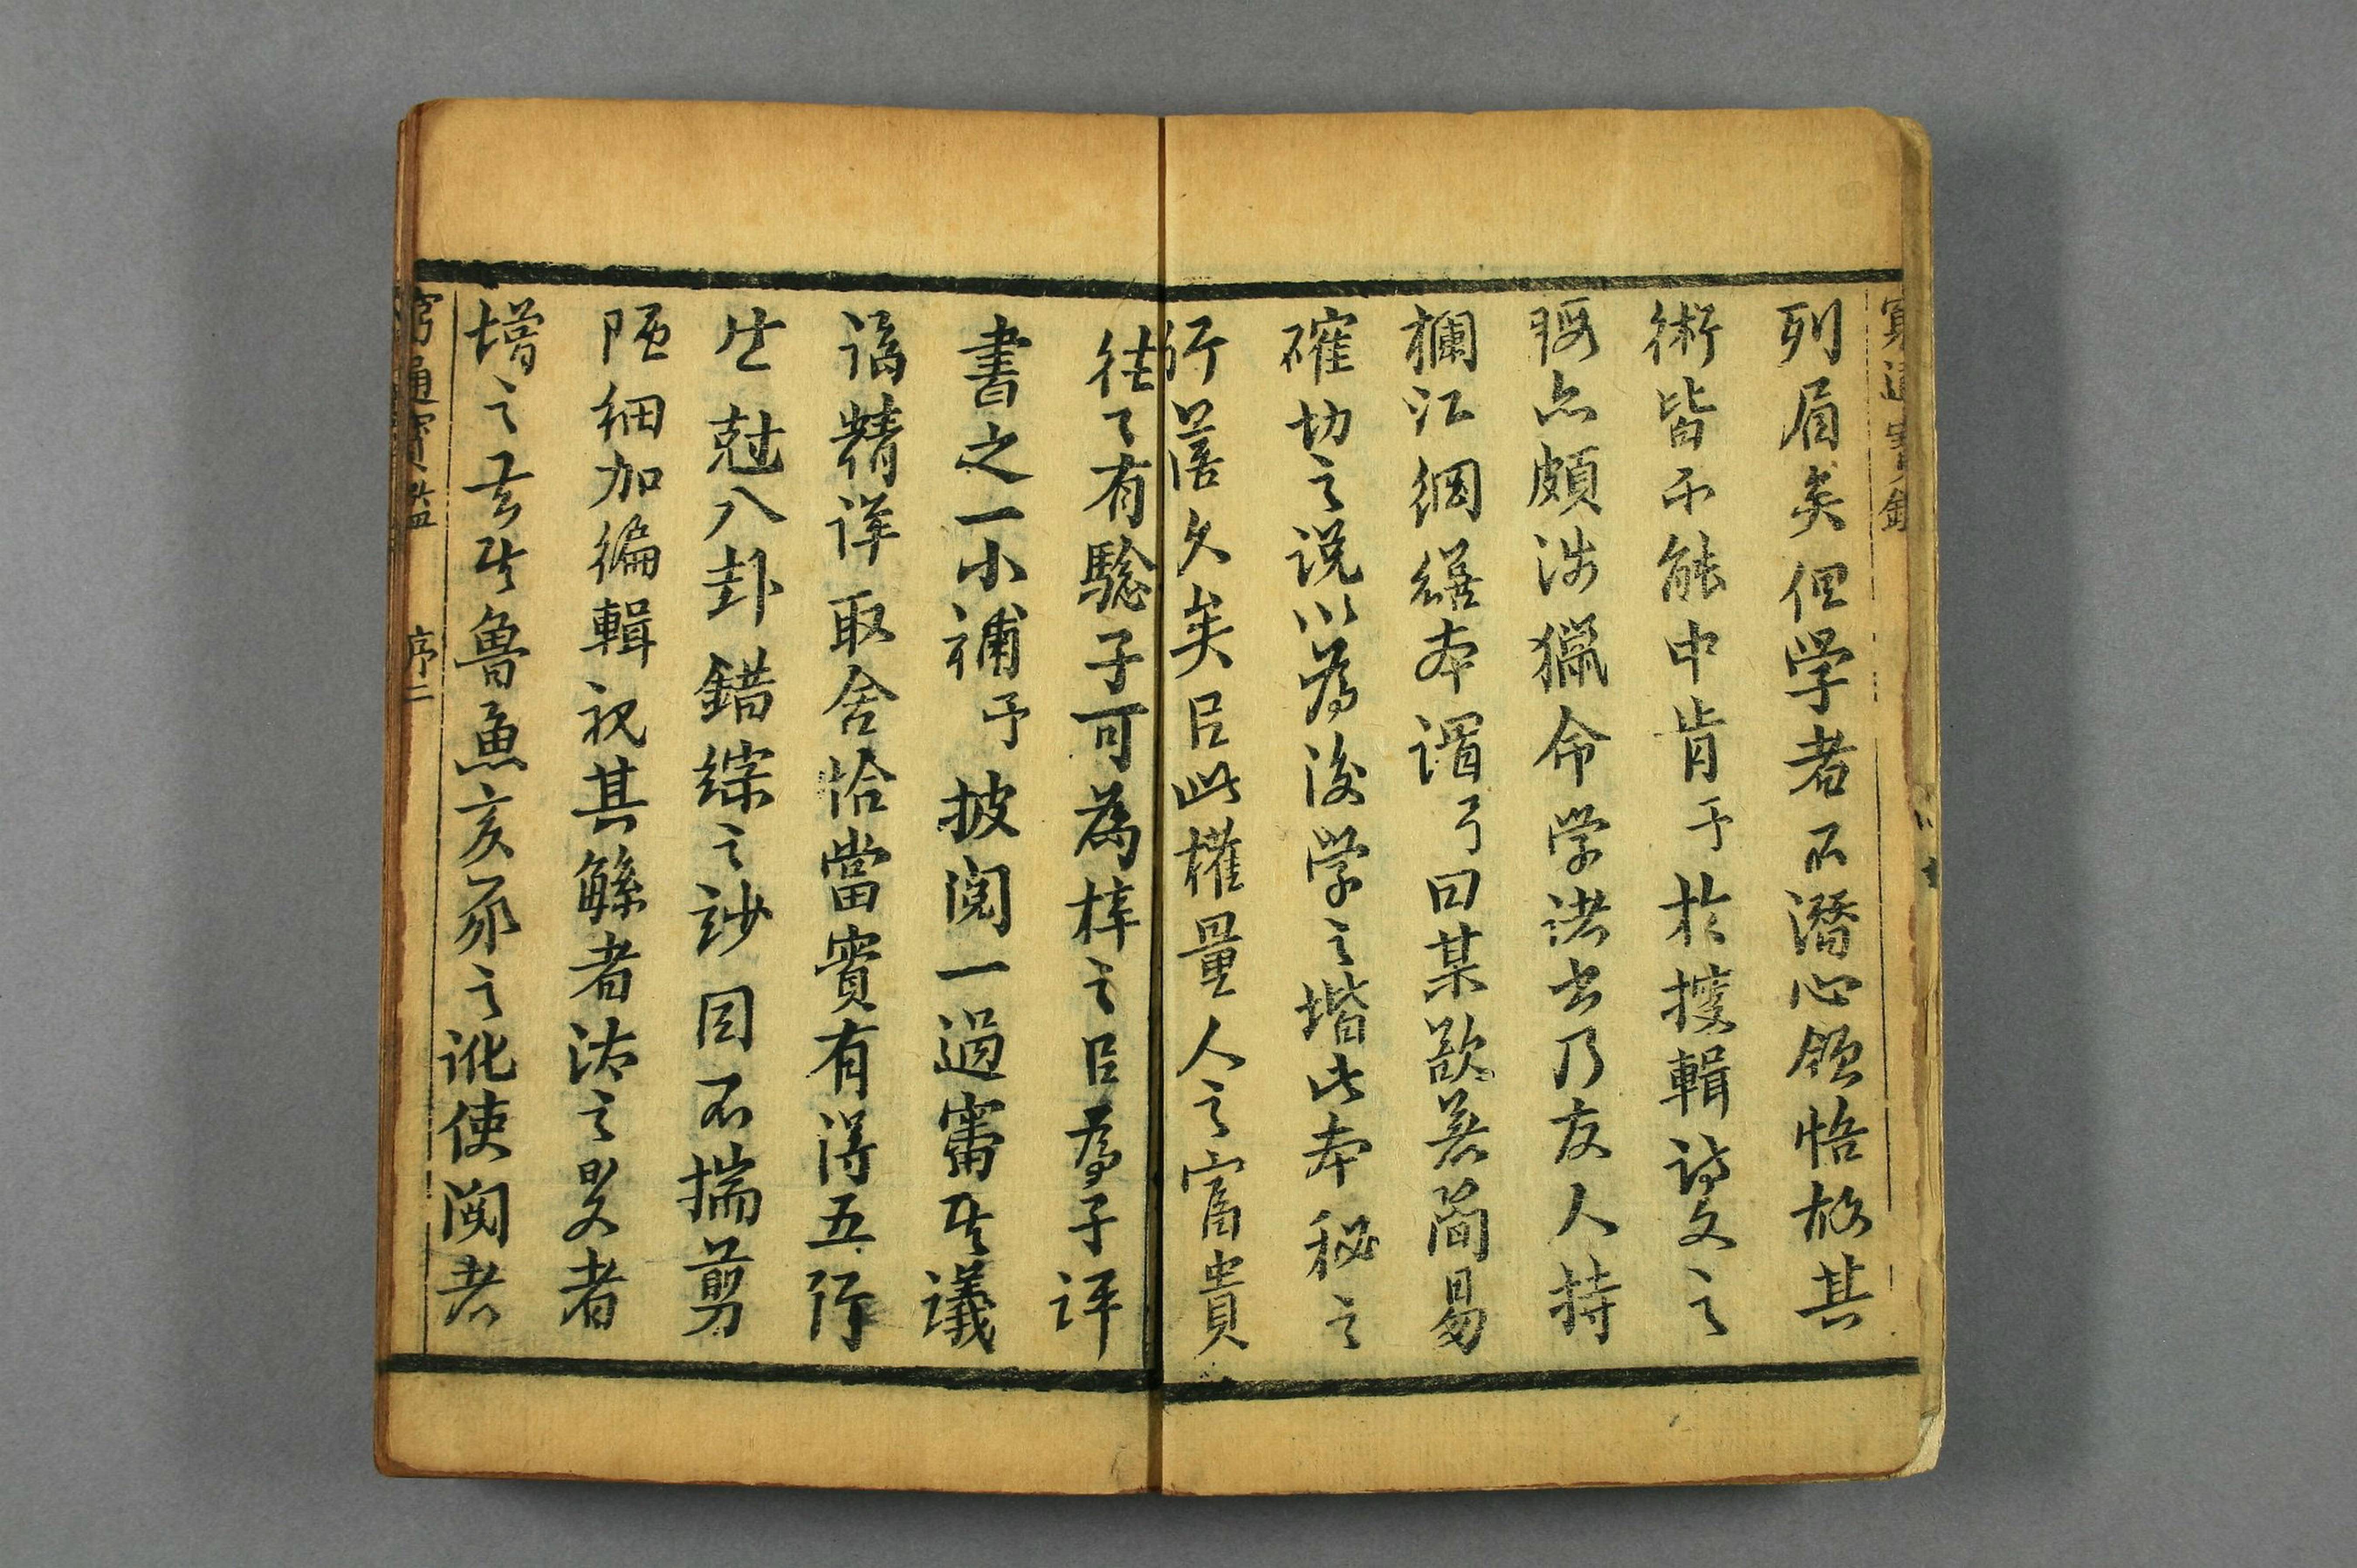 列眉矣但学者不潛心領悟故其
術皆不能中肯予於搜輯詩文之
暇亦頗涉獵命学諸书乃友人持
欄江網繕本謂予曰某欲求簡易
確切之说以為後学之堦此本秘之
行篋久矣以此權量人之富貴
往〻有驗子可為梓之以為子評
書之一小補予披閱一過審其議
論精详取舍恰當實有得五行
生尅八卦錯綜之妙因不揣剪
陋細加編輯視其繇者沽之畧者
增之去其魯魚亥豕之訛使閱者
窮通寶鑑
序二